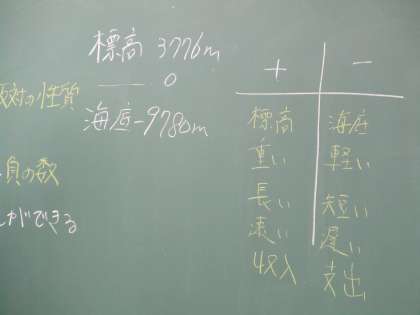 標高 3776m
0
海底 -9780m
反対の性質
負の数
ができる
+ −
標高 海底
重い 軽い
長い 短い
速い 遅い
収入 支出